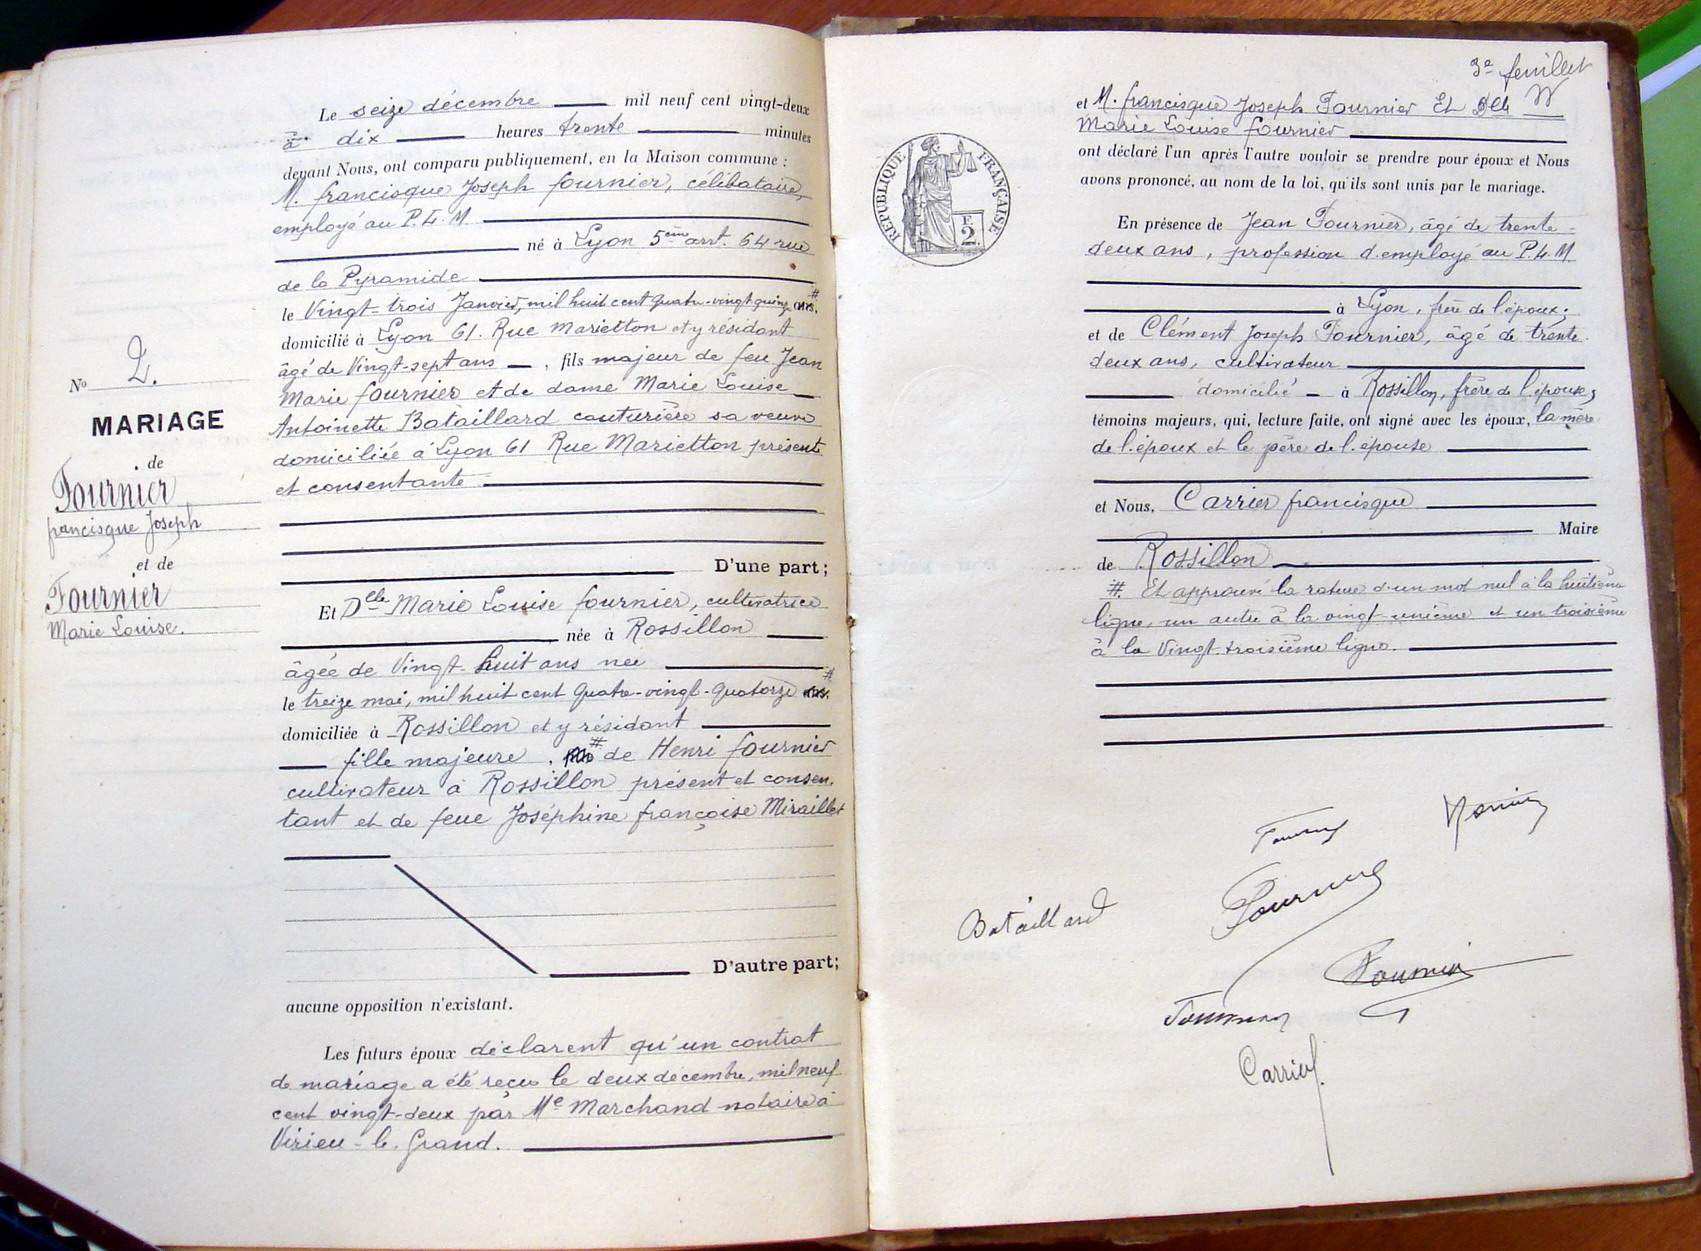 Le seize décembre mil neuf cent vingt-deux
à dix heures trente minutes
devant Nous, ont comparu publiquement, en la Maison commune :
M. francisque Joseph fournier, célibataire,
employé au P.L.M
né à Lyon 5ème arrt. 64 rue
de la Pyramide
le Vingt-trois Janvier, mil huit cent quatre-vingt quinze ans. #
domicilié à Lyon 61. Rue Marietton et y résidant
âgé de Vingt-sept ans, fils majeur de feu Jean
Marie fournier et de dame Marie Louise
Antoinette Bataillard couturière sa veuve
domiciliée à Lyon 61 Rue Marietton présente
et consentante
No 2.
MARIAGE
de
Fournier
francisque Joseph
et de
Fournier
Marie Louise.
D'une part;
Et Delle Marie Louise fournier, cultivatrice
née à Rossillon
âgée de Vingt-huit ans née
le treize mai, mil huit cent quatre-vingt-quatorze ans. #
domiciliée à Rossillon et y résidant
fille majeure, # de Henri fournier
cultivateur à Rossillon présent et consen.
tant et de feue Joséphine françoise Miraillet
D'autre part;
aucune opposition n'existant.
Les futurs époux déclarent qu'un contrat
de mariage a été reçu le deux décembre, mil neuf
cent vingt-deux par Me Marchand notaire à
Virieu-le-Grand.
3e feuillet
et M. francisque Joseph Fournier Et Delle
Marie Louise fournier
ont déclaré l'un après l'autre vouloir se prendre pour époux et Nous
avons prononcé, au nom de la loi, qu'ils sont unis par le mariage.
RÉPUBLIQUE FRANÇAISE
F.
2
En présence de Jean Fournier, âgé de trente-
deux ans, profession d'employé au P.L.M.
à Lyon, frère de l'époux.
et de Clément Joseph Fournier, âgé de trente.
deux ans, cultivateur
domicilié à Rossillon, frère de l'épouse,
témoins majeurs, qui, lecture faite, ont signé avec les époux, la mère
de l'époux et le père de l'épouse
et Nous, Carrier francisque
Maire
de Rossillon
#. Et approuvé la rature d'un mot nul à la huitième
ligne, un autre à la vingt-unième et un troisième
à la Vingt-troisième ligne.
Fournier
Bataillard
Fournier
Fournier
Fournier
Carrier